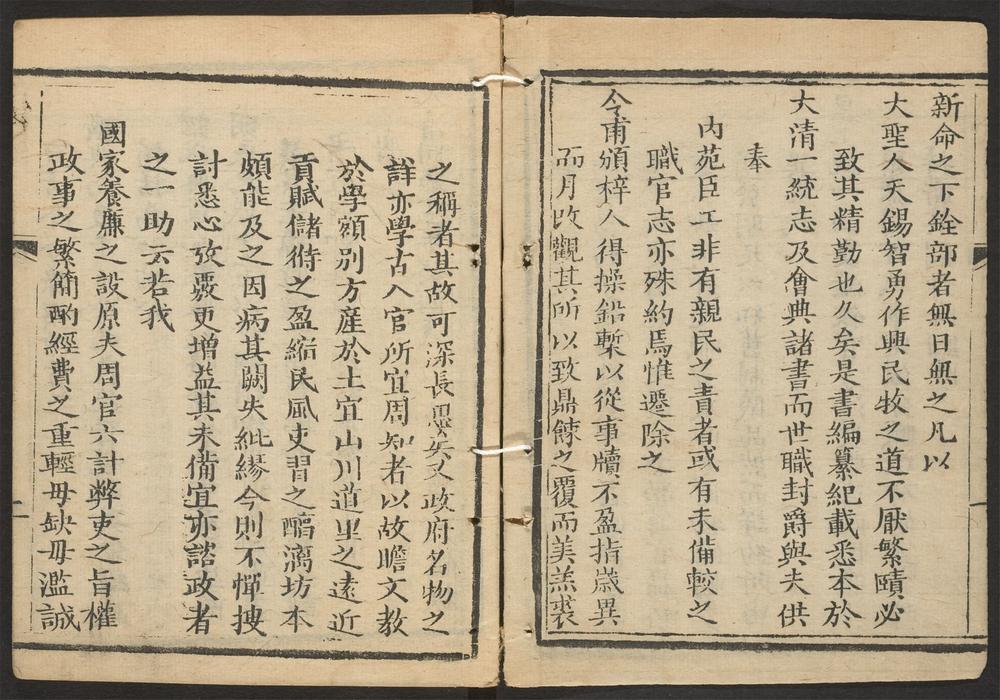 新命之下銓部者無日無之凡以
大聖人天錫智勇作興民牧之道不厭繁賾必
致其精勤也久矣是書編纂紀載悉本於
大清一統志及會典諸書而世職封爵與夫供
奉
内苑臣工非有親民之責者或有未備較之
職官志亦殊約焉惟遷除之
令甫頒梓人得操鉛槧以從事牘不盈指歲異
而月改觀其所以致鼎餗之覆而美羔裘
之稱者其故可深長思矣又政府名物之
詳亦學古入官所宜周知者以故瞻文教
於學額别方産於土宜山川道里之遠近
貢賦儲偫之盈縮民風吏習之醕漓坊本
頗能及之因病其闕失紕繆今則不憚搜
討悉心攷覈更增益其未備宜亦諮政者
之一助云若我
國家養廉之設原夫周官六計弊吏之旨權
政事之繁簡酌經費之重輕毋缺毋濫誠